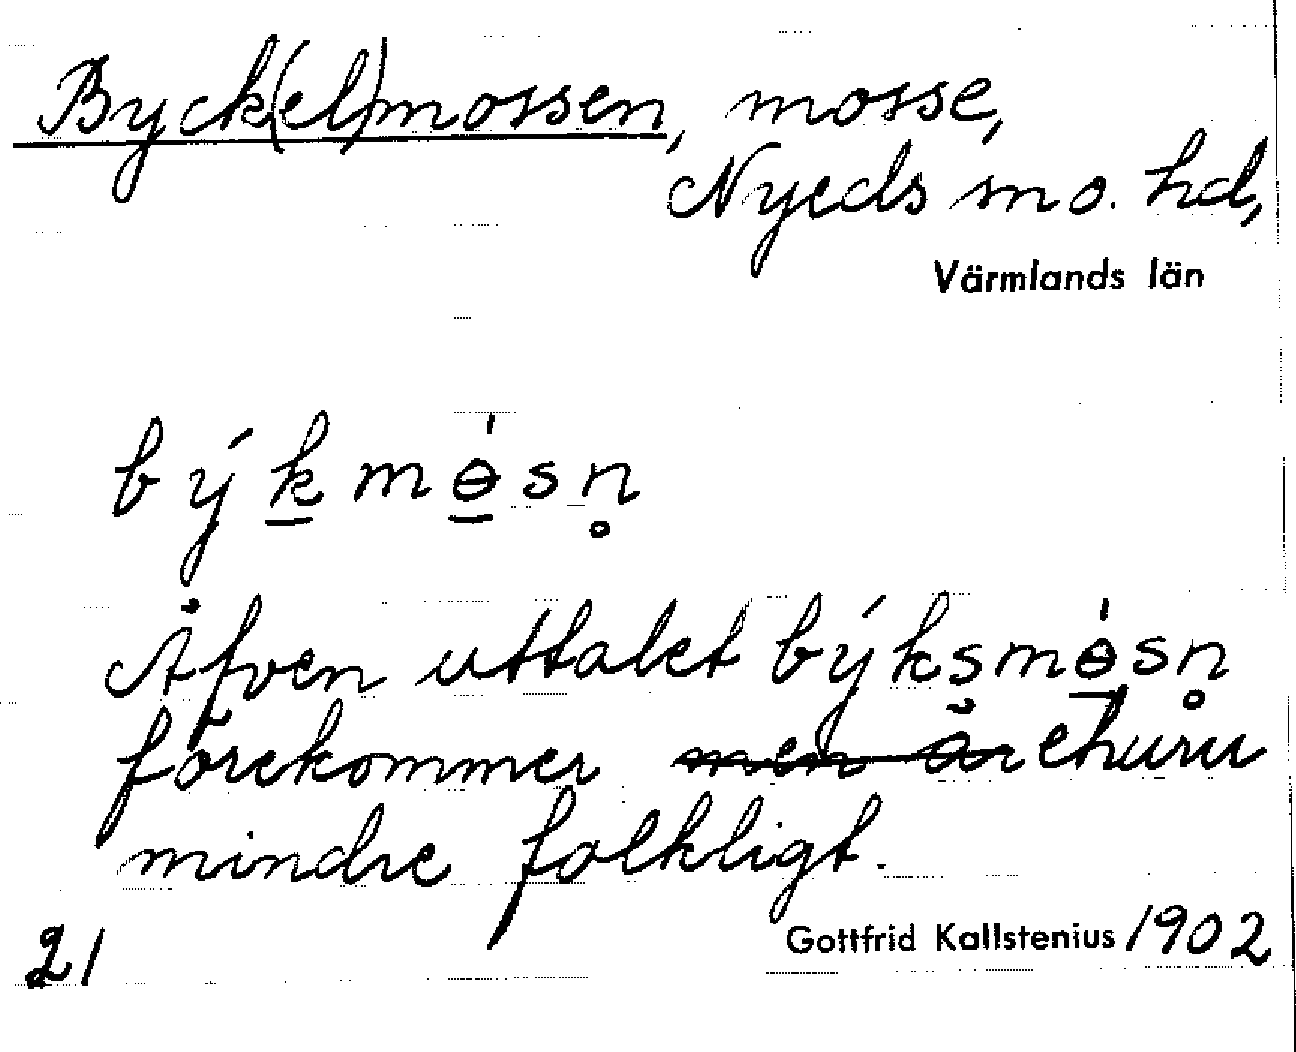 Byck(el)mossen, mosse,
Nyeds sn o. hd,
Värmlands län
býk̲mɵ̲́sn̥
Äfven uttalet býksmɵ̲́sn̥
förekommer ~~men är~~ ehuru
mindre folkligt.
21 Gottfrid Kallstenius 1902